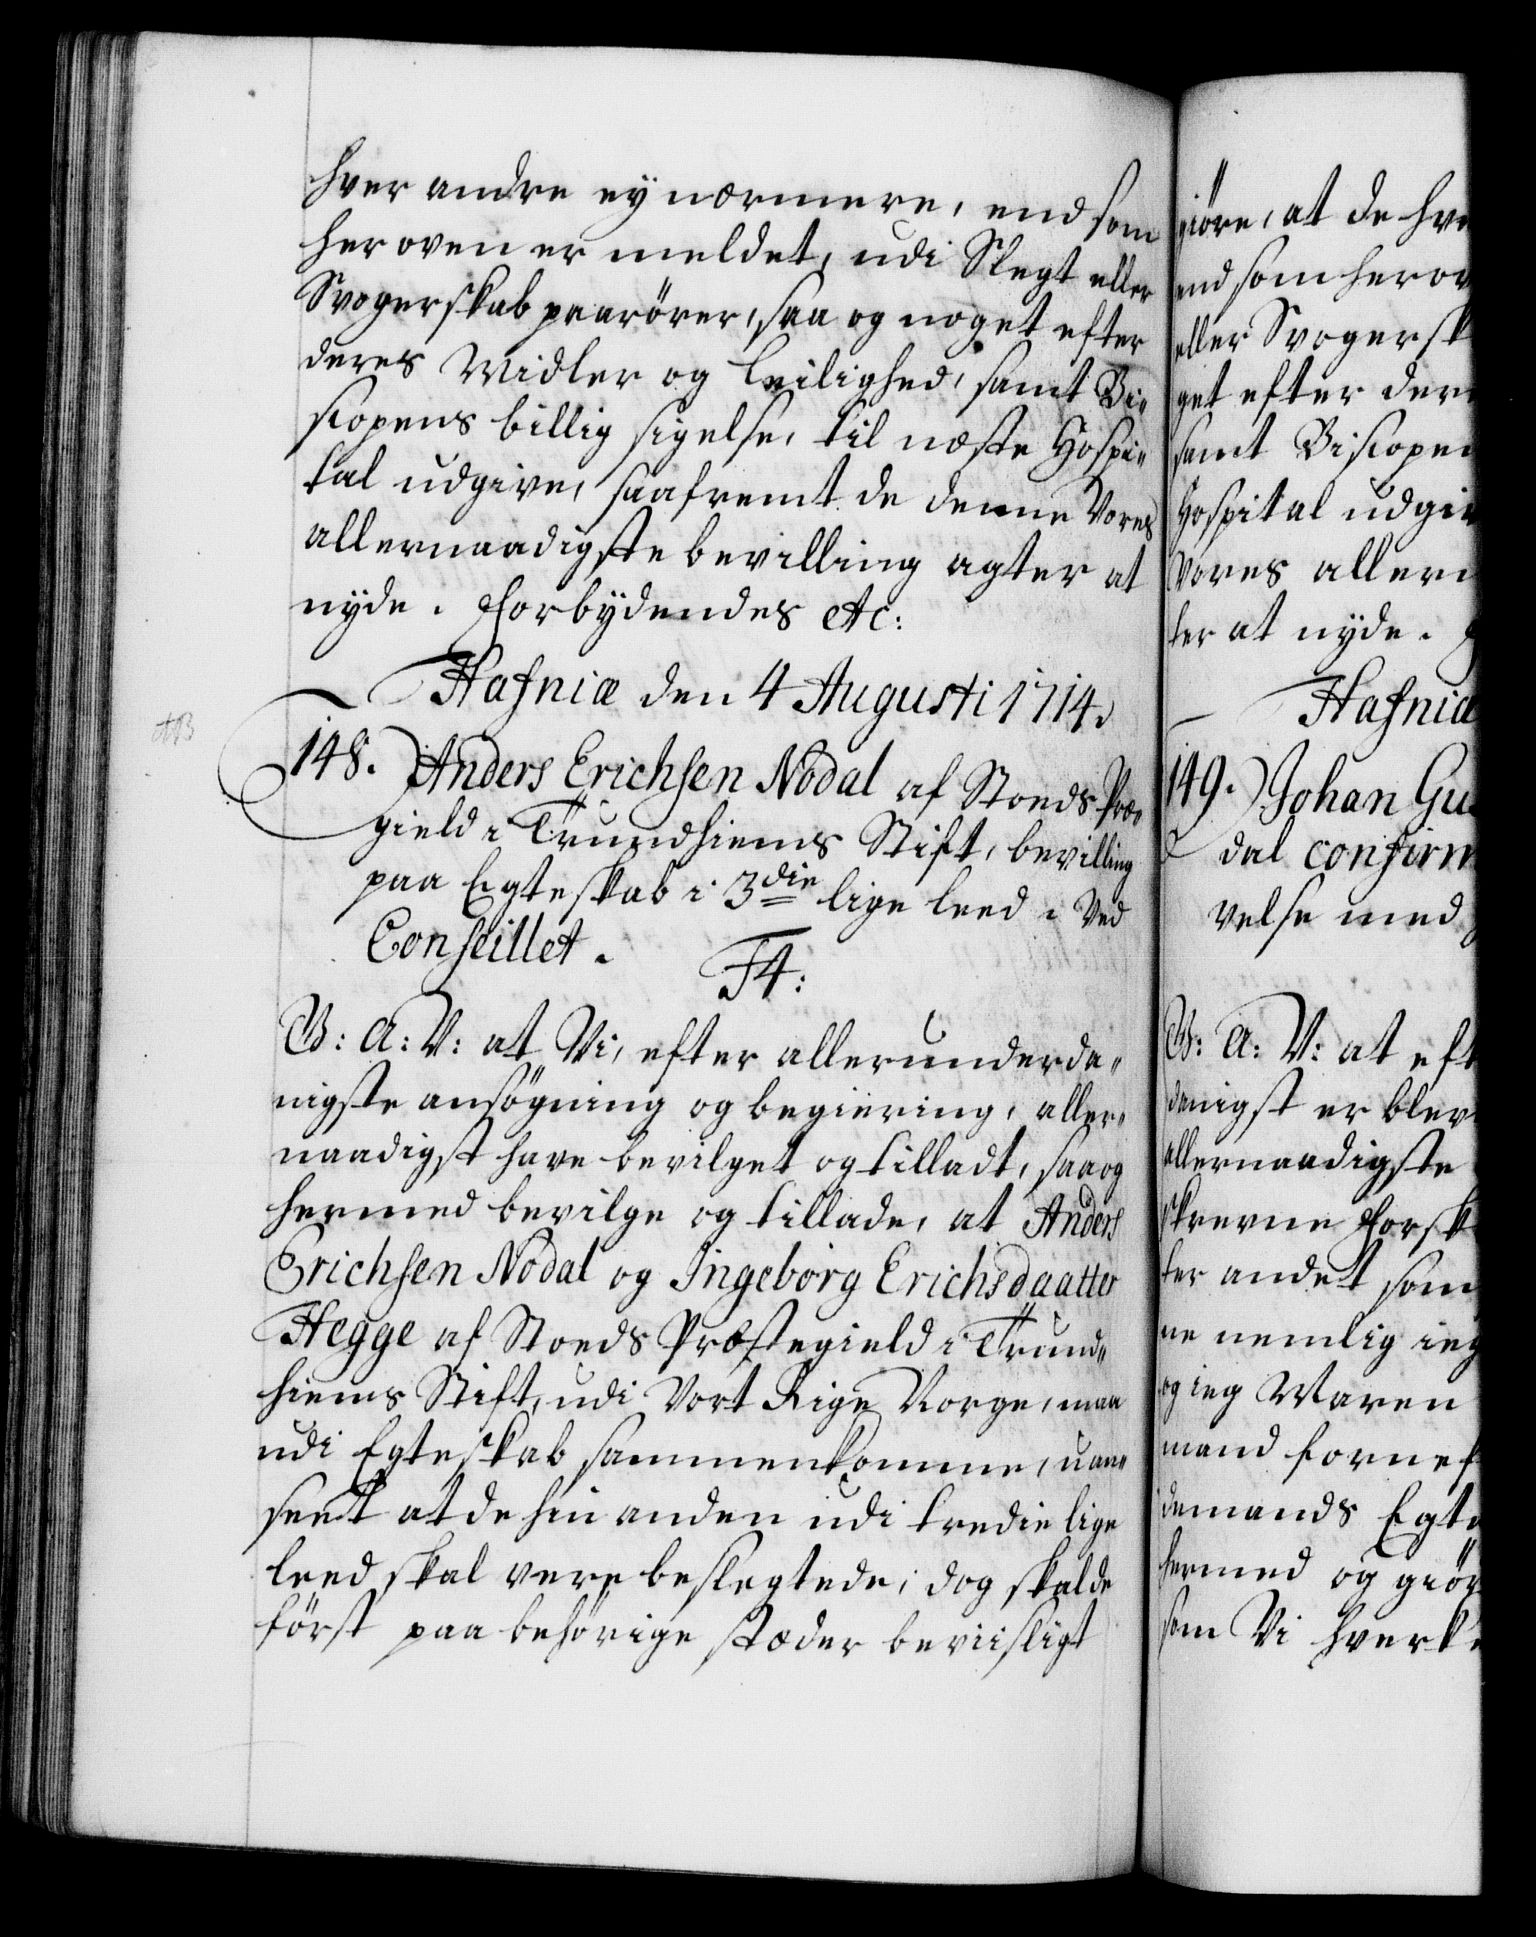 hver andre ey nærmere, end som
her oven er meldet, udi Slegt eller
Svogerskab paarörer, saa og noget efter
deres Midler og Leilighed, samt Bi-
scopens billig sigelse, til næste Hospi-
tal udgive, saafremt de denne Vores
allernaadigste bevilling agter at
nyde. Forbydendes etc:
Hafniæ den 4 Augusti 1714.
148. Anders Erichsen Nödal af Stoeds Præ-
gield i Trundhiems Stift, bevilling
paa Egteskab i 3die lige leed i Ved
Conseillet.
F4:
G: A: V: at Vi, efter allerunderda-
nigste ansögning og begiering, aller-
naadigst have bevilget og tilladt, saa og
hermed bevilge og tillade, at Anders
Erichsen Nödal og Ingeborg Erichsdaatter
Hegge af Stoeds Præstegield i Trund-
hiems Stift, udi Vort Rige Norge, maa
udi Egteskab sammenkomme, uan-
seet at de hin anden udi tredie lige
leed skal vere beslegtede; dog skal de
först paa behörige stæder beviisligt
giöre, at de hve
end som herov
eller Svogersk
get efter der
samt Biscopen
Hospital udgiv
Vores allern
ter at nyde.
Hafniæ
149. Johan Gu
dal confirm
velse med
G: A: V: at eft
danigst er blev
allernaadigste
skrevne Forsk
ter andet som
ne nemlig ieg
og ieg Maren
mand fornef
demands Egte
hermed og giör
som Vi hverke